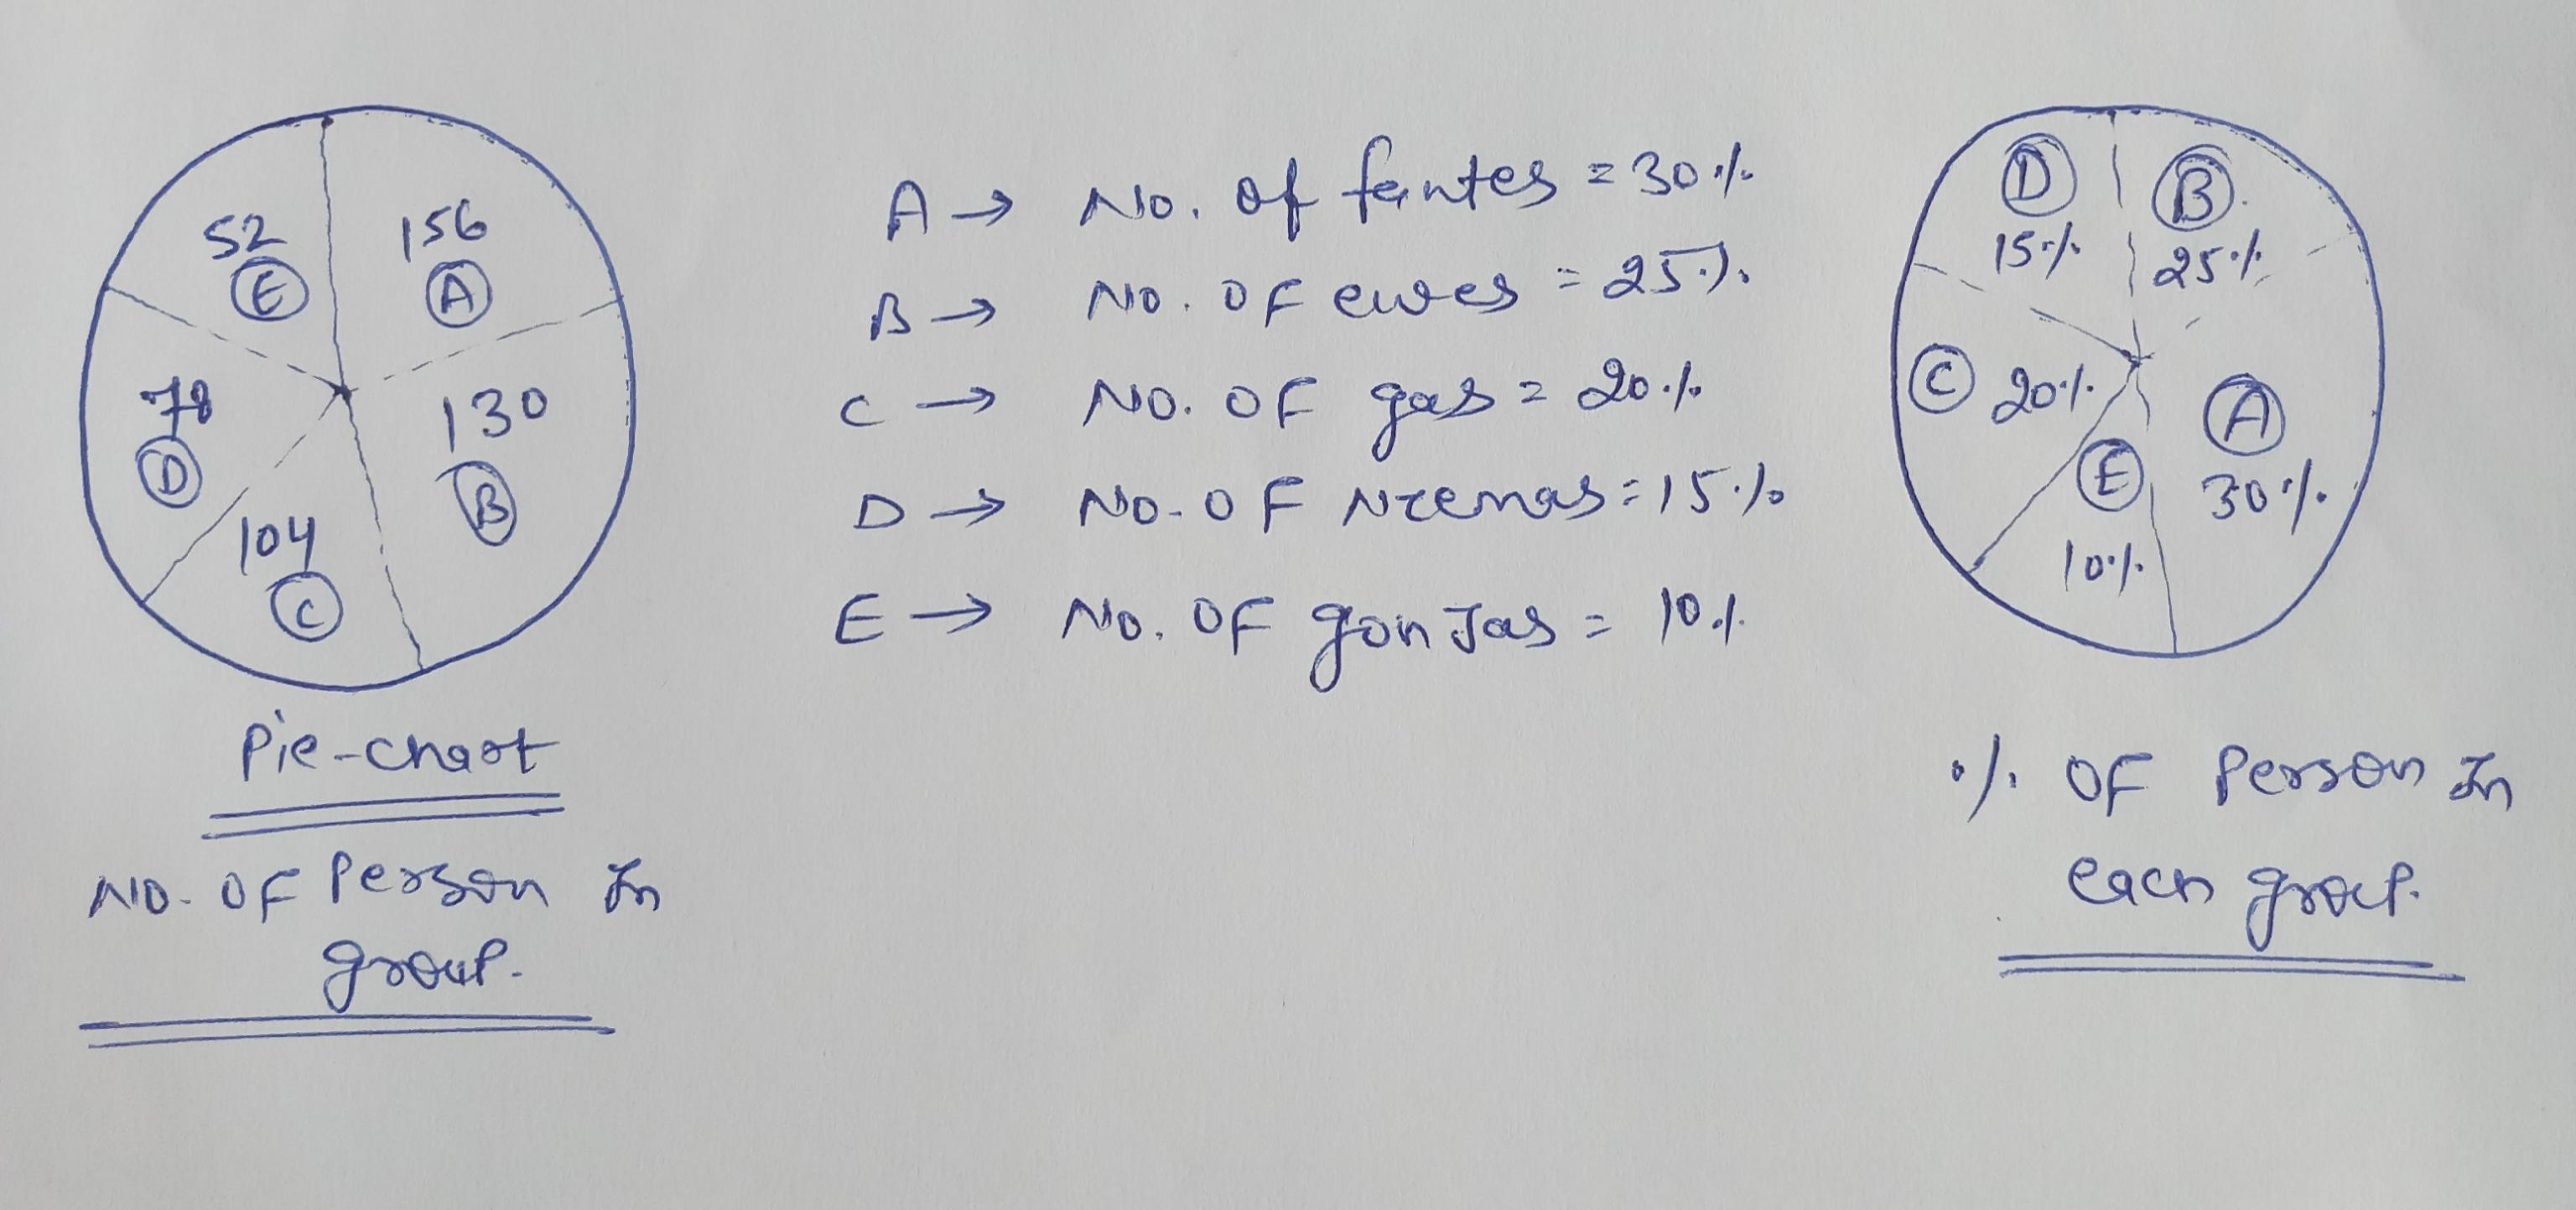 52
E
156
A
78
D
130
B
104
C
Pie-chart
NO. OF Person In
group.
A → No. of fantes = 30%
B → No. OF ewes = 25%
C → No. OF gas = 20%
D → No. OF Nzemas = 15%
E → No. OF gonJas = 10%
D
15%
B
25%
C 20%
A
30%
E
10%
% OF Person In
each group.